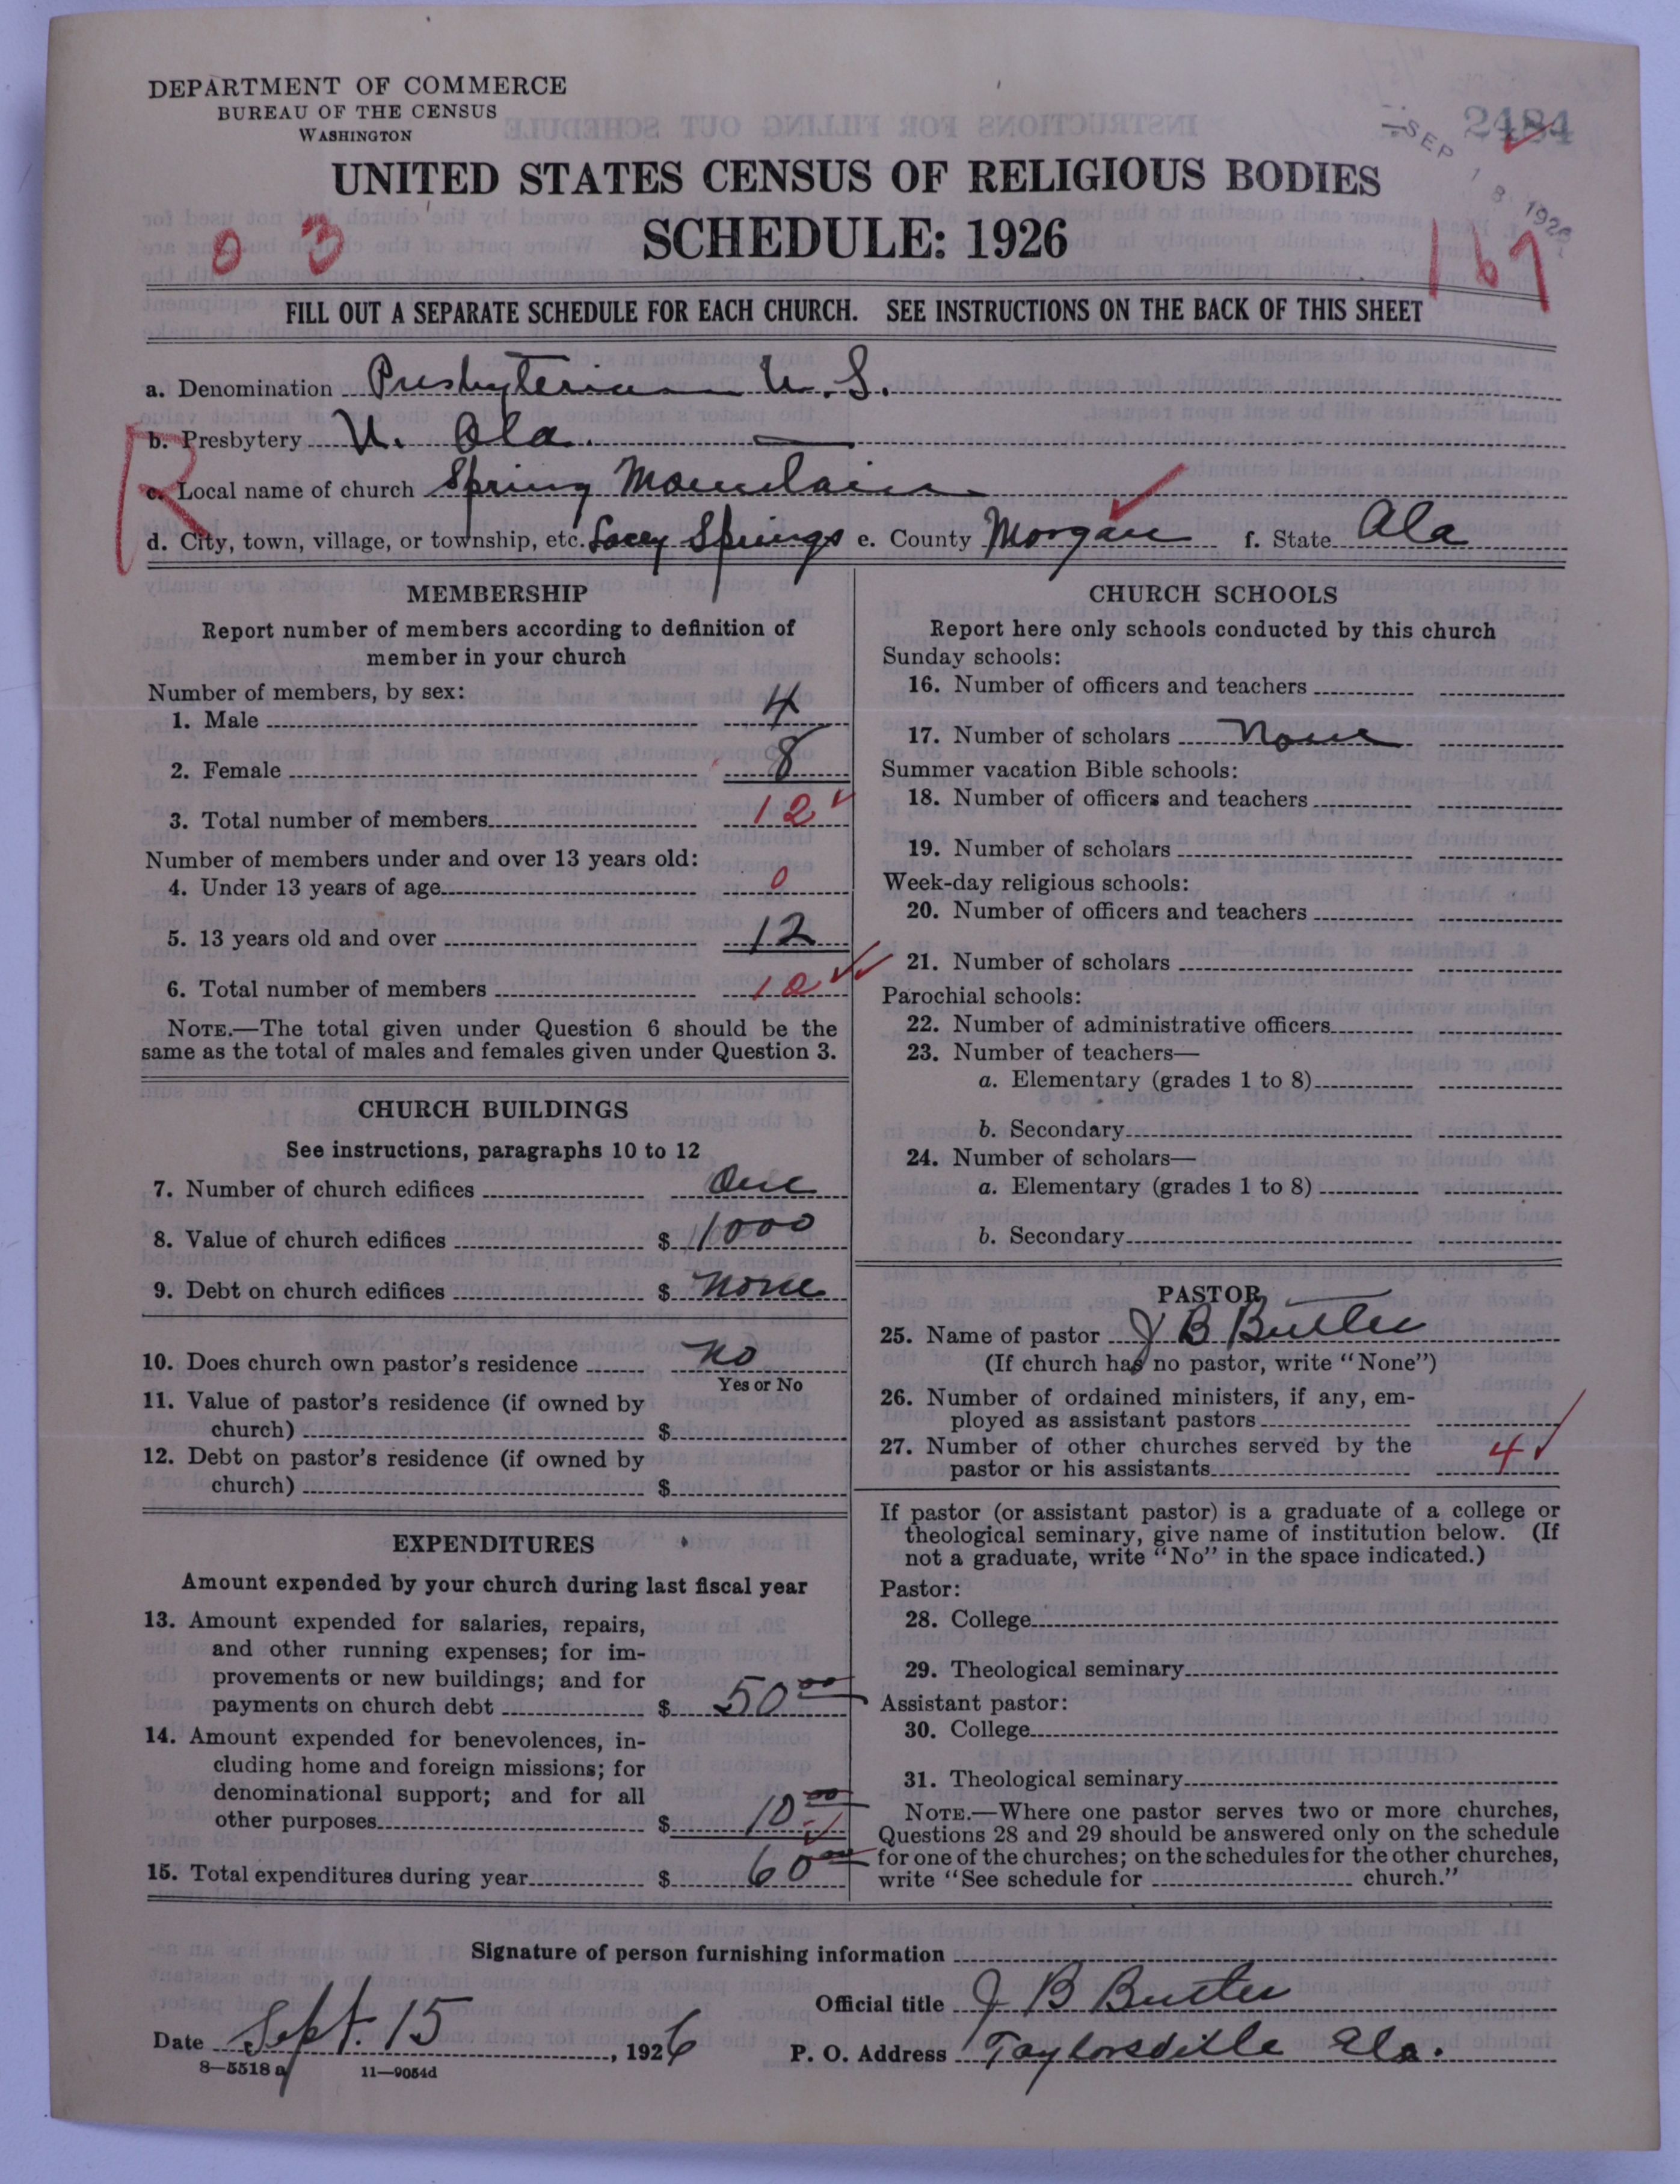 DEPARTMENT OF COMMERCE
BUREAU OF THE CENSUS
WASHINGTON
2484
SEP 18 1926
UNITED STATES CENSUS OF RELIGIOUS BODIES
SCHEDULE: 1926
0 3
167
FILL OUT A SEPARATE SCHEDULE FOR EACH CHURCH. SEE INSTRUCTIONS ON THE BACK OF THIS SHEET
a. Denomination Presbyterian U.S.
b. Presbytery N. Ala.
R
c. Local name of church Spring Mountain
d. City, town, village, or township, etc. Lacey Springs e. County Morgan f. State Ala
MEMBERSHIP
Report number of members according to definition of
member in your church
Number of members, by sex:
1. Male 4
2. Female 8
3. Total number of members 12
Number of members under and over 13 years old:
4. Under 13 years of age 0
5. 13 years old and over 12
6. Total number of members 12
NOTE.—The total given under Question 6 should be the
same as the total of males and females given under Question 3.
CHURCH BUILDINGS
See instructions, paragraphs 10 to 12
7. Number of church edifices One
8. Value of church edifices $ 1000
9. Debt on church edifices $ none
10. Does church own pastor's residence no
Yes or No
11. Value of pastor's residence (if owned by
church) $
12. Debt on pastor's residence (if owned by
church) $
EXPENDITURES
Amount expended by your church during last fiscal year
13. Amount expended for salaries, repairs,
and other running expenses; for im-
provements or new buildings; and for
payments on church debt $ 50.00
14. Amount expended for benevolences, in-
cluding home and foreign missions; for
denominational support; and for all
other purposes $ 10.00
15. Total expenditures during year $ 60.00
CHURCH SCHOOLS
Report here only schools conducted by this church
Sunday schools:
16. Number of officers and teachers
17. Number of scholars None
Summer vacation Bible schools:
18. Number of officers and teachers
19. Number of scholars
Week-day religious schools:
20. Number of officers and teachers
21. Number of scholars
Parochial schools:
22. Number of administrative officers
23. Number of teachers—
a. Elementary (grades 1 to 8)
b. Secondary
24. Number of scholars—
a. Elementary (grades 1 to 8)
b. Secondary
PASTOR
25. Name of pastor J B Butler
(If church has no pastor, write "None")
26. Number of ordained ministers, if any, em-
ployed as assistant pastors
27. Number of other churches served by the
pastor or his assistants 4
If pastor (or assistant pastor) is a graduate of a college or
theological seminary, give name of institution below. (If
not a graduate, write "No" in the space indicated.)
Pastor:
28. College
29. Theological seminary
Assistant pastor:
30. College
31. Theological seminary
NOTE.—Where one pastor serves two or more churches,
Questions 28 and 29 should be answered only on the schedule
for one of the churches; on the schedules for the other churches,
write "See schedule for church."
Signature of person furnishing information
Official title J B Butler
Date Sept. 15, 1926
P. O. Address Taylorsville Ala.
8—5518 a 11—9054d